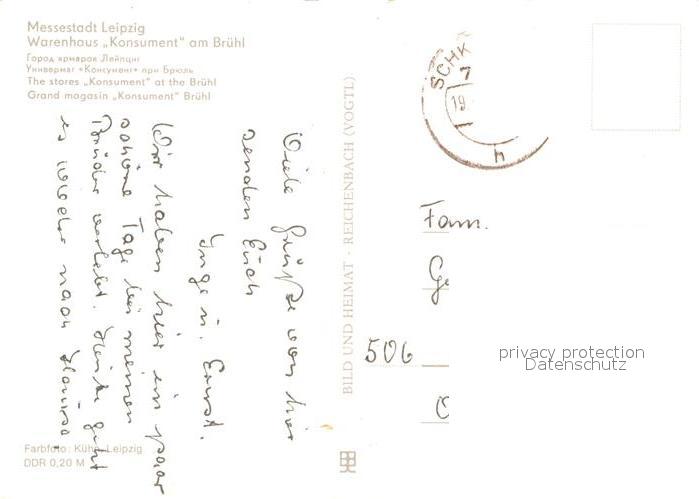 Messestadt Leipzig
Warenhaus „Konsument" am Brühl
Город ярмарок Лейпциг
Универмаг «Консумент» при Брюль
The stores „Konsument" at the Brühl
Grand magasin „Konsument" Brühl
Viele Grüße von hier
senden Euch
Inge u. Ernst.
Wir haben hier ein paar
schöne Tage bei meinem
Bruder verlebt. Heute geht
es wieder nach Hause.
Farbfoto: Kühn, Leipzig
DDR 0,20 M
BILD UND HEIMAT · REICHENBACH (VOGTL)
SCHK
7
19
h
Fam.
Ge
506
privacy protection
Datenschutz